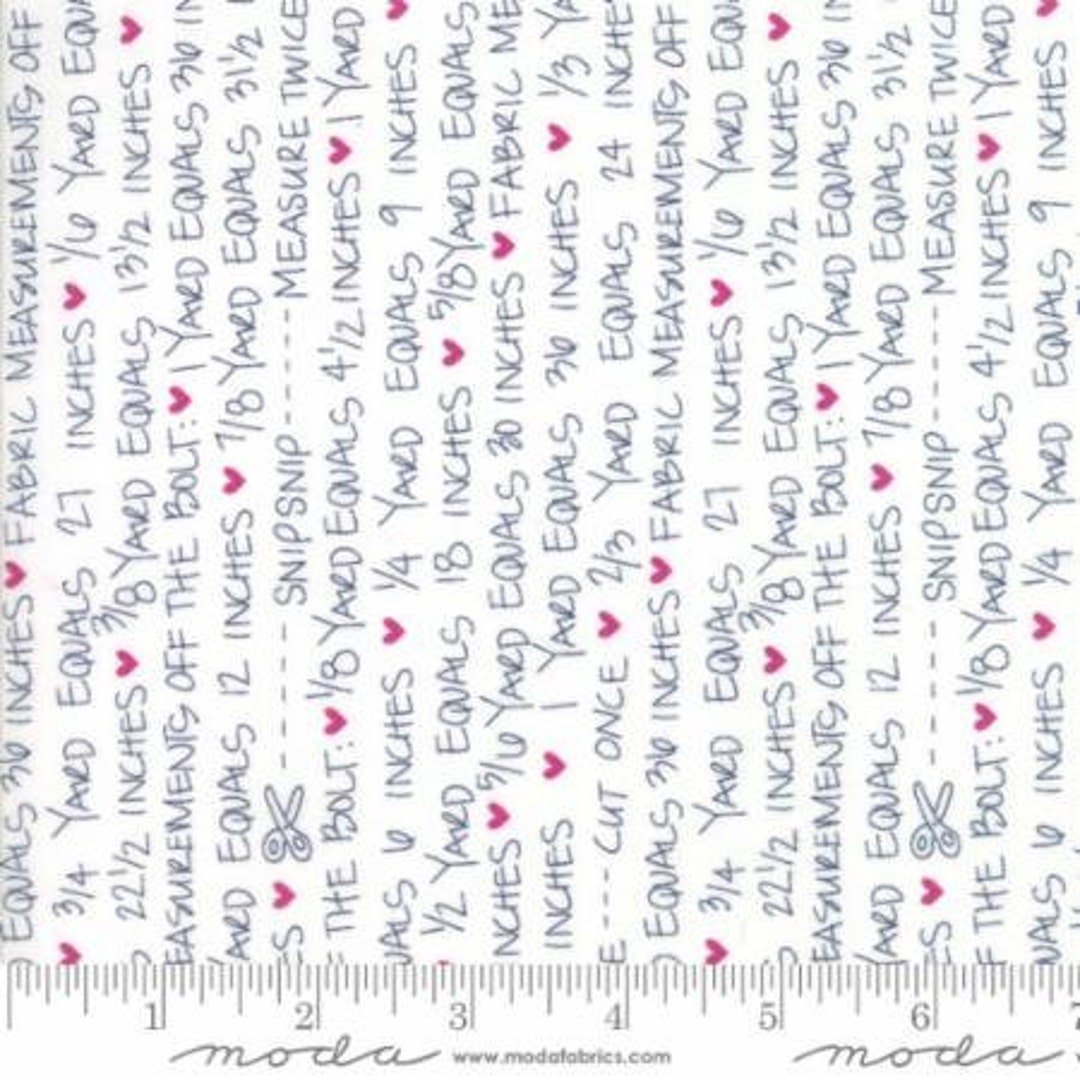 EQUALS 36 INCHES ♥ FABRIC MEASUREMENTS OFF
♥ 3/4 YARD EQUALS 27 INCHES ♥ 1/6 YARD EQU
22 1/2 INCHES ♥ 3/8 YARD EQUALS 13 1/2 INCHES ♥
EASUREMENTS OFF THE BOLT: ♥ 1 YARD EQUALS 36 IN
YARD EQUALS 12 INCHES ♥ 7/8 YARD EQUALS 31 1/2
ES ♥ - - - - SNIPSNIP - - - - - MEASURE TWICE
F THE BOLT: ♥ 1/8 YARD EQUALS 4 1/2 INCHES ♥ 1 YARD
UALS 6 INCHES ♥ 1/4 YARD EQUALS 9 INCHES ♥
1/2 YARD EQUALS 18 INCHES ♥ 5/8 YARD EQUALS
INCHES ♥ 5/6 YARD EQUALS 30 INCHES ♥ FABRIC ME
INCHES ♥ 1 YARD EQUALS 36 INCHES ♥ 1/3 YA
E - - - CUT ONCE ♥ 2/3 YARD EQUALS 24 INCHES
EQUALS 36 INCHES ♥ FABRIC MEASUREMENTS OFF
♥ 3/4 YARD EQUALS 27 INCHES ♥ 1/6 YARD EQU
22 1/2 INCHES ♥ 3/8 YARD EQUALS 13 1/2 INCHES ♥
EASUREMENTS OFF THE BOLT: ♥ 1 YARD EQUALS 36 IN
YARD EQUALS 12 INCHES ♥ 7/8 YARD EQUALS 31 1/2
ES ♥ - - - - SNIPSNIP - - - - - MEASURE TWICE
F THE BOLT: ♥ 1/8 YARD EQUALS 4 1/2 INCHES ♥ 1 YARD
UALS 6 INCHES ♥ 1/4 YARD EQUALS 9 INCHES ♥
1 2 3 4 5 6 7
moda www.modafabrics.com moda